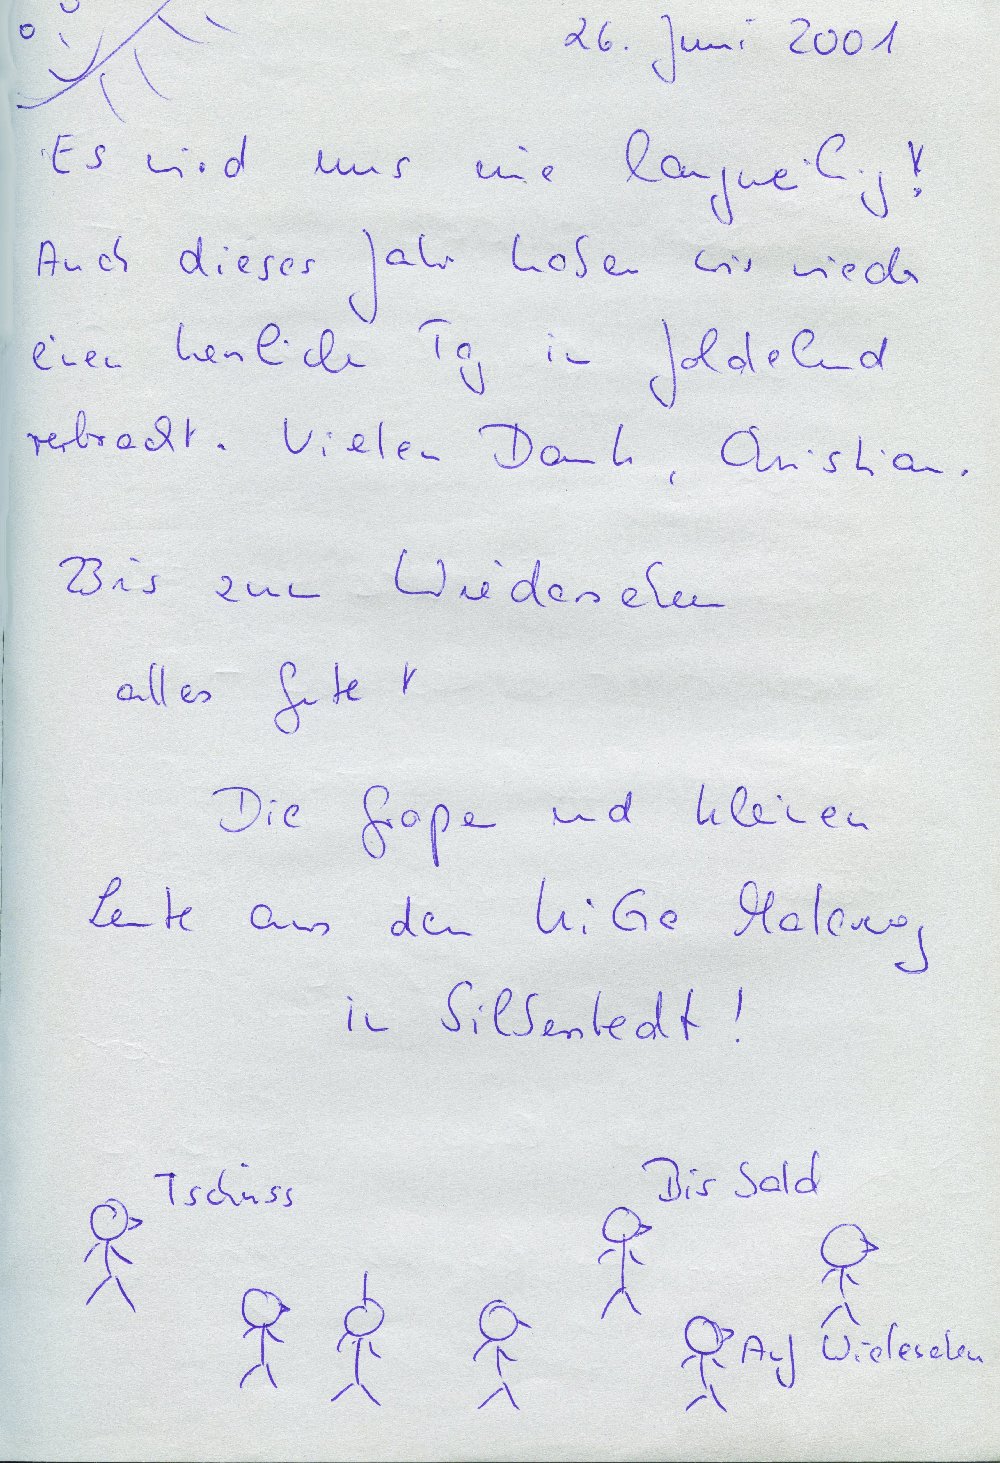 26. Juni 2001
Es wird uns nie langweilig!
Auch dieses Jahr haben wir wieder
einen herrlichen Tag in Joldelund
verbracht. Vielen Dank, Christian.
Bis zum Wiedersehen
alles Gute!
Die großen und kleinen
Leute aus dem KiGa
in Silberstedt!
Tschüss
Bis bald
Auf Wiedersehen